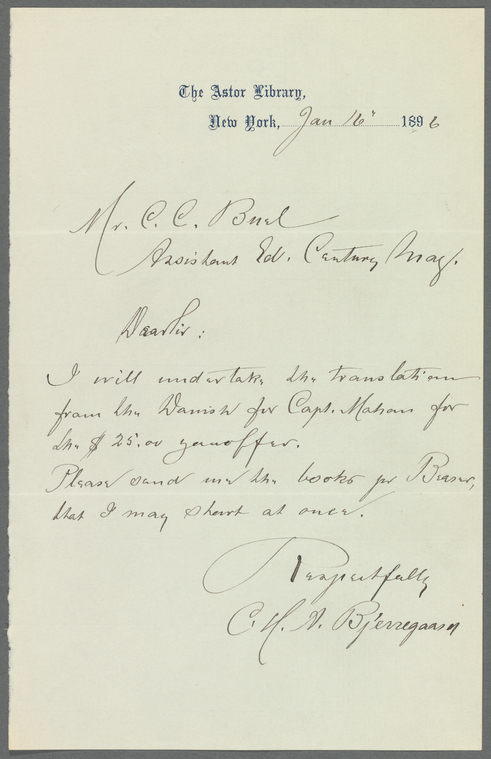 The Astor Library,
New York, Jan 16" 1896
Mr. C. C. Buel
Assistant Ed. Century Mag.
Dear Sir:
I will undertake the translation
from the Danish for Capt. Mahan for
the $25.00 you offer.
Please send me the books pr Bearer,
that I may start at once.
Respectfully
C. H. A. Bjerregaard